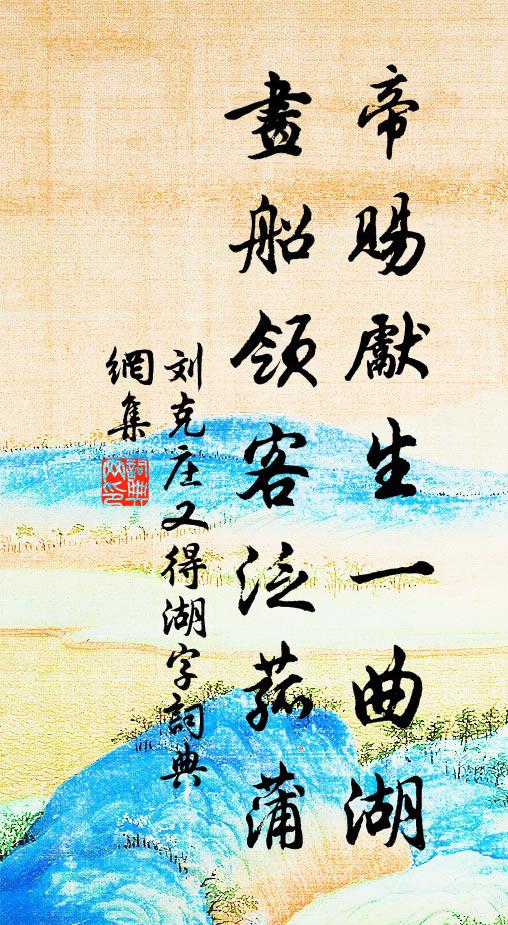 帝賜獻生一曲湖
畫船領客泛菰蒲
刘克庄又得湖字詞典
網集
詞典